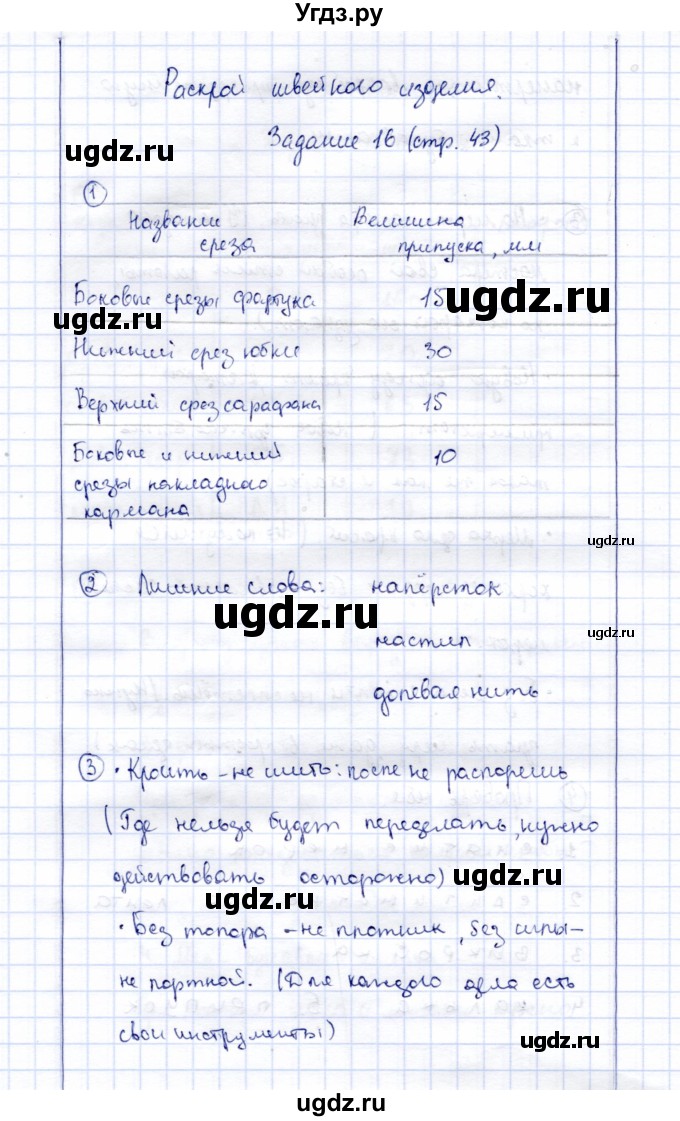 Угдз.ру
Раскрой швейного изделия.
Задание 16 (стр. 43)
ugdz.ru
1
Название среза Величина припуска, мм
Боковые срезы фартука 15
ugdz.ru
ugdz.ru
Нижний срез юбки 30
Верхний срез сарафана 15
Боковые и нижний срезы накладного кармана 10
ugdz.ru
2 Лишние слова: напёрсток
ugdz.ru
ugdz.ru
настил
долевая нить.
3 • Кроить – не шить: после не распорешь
(Где нельзя будет переделать, нужно
действовать осторожно)
ugdz.ru
ugdz.ru
• Без топора – не плотник, без иглы –
не портной. (Для каждого дела есть
свои инструменты)
ugdz.ru
ugdz.ru